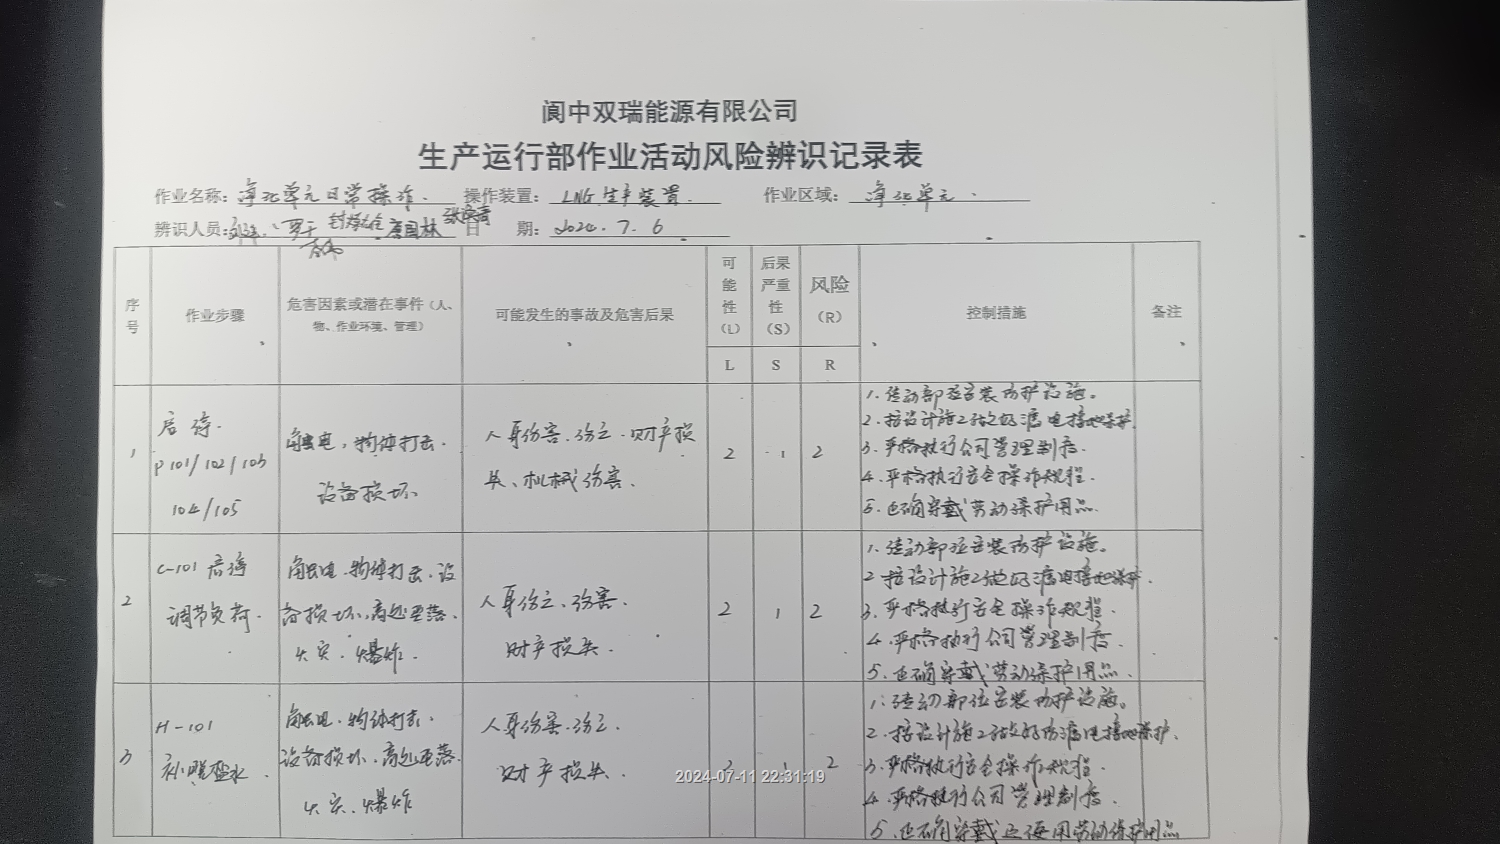 阆中双瑞能源有限公司
生产运行部作业活动风险辨识记录表
作业名称：净化单元日常操作 操作装置：LNG生产装置 作业区域：净化单元
辨识人员： 罗 唐国林 日 期：2024.7.6
序号 作业步骤 危害因素或潜在事件（人、物、作业环境、管理） 可能发生的事故及危害后果 可能性（L） 后果严重性（S） 风险（R） 控制措施 备注
L S R
1 启停 P101/102/103 104/105
触电，物体打击。
设备损坏
人身伤害、伤亡、财产损
失、机械伤害。
2 1 2
1. 传动部位安装防护设施。
2. 按设计施工做好漏电接地保护
3. 严格执行公司管理制度。
4. 严格执行安全操作规程。
5. 正确穿戴劳动保护用品。
2 C-101启停
调节负荷。
触电、物体打击、设
备损坏、高处坠落、
火灾、爆炸。
人身伤亡、伤害、
财产损失。
2 1 2
1. 传动部位安装防护设施。
2 按设计施工做好漏电接地保护.
3. 严格执行安全操作规程。
4. 严格执行公司管理制度。
5. 正确穿戴劳动保护用品。
3 H-101
补脱盐水.
触电、物体打击、
设备损坏、高处坠落
火灾、爆炸
人身伤害、伤亡、
财产损失.
2
1. 传动部位安装防护设施。
2. 按设计施工做好防漏电接地保护.
3. 严格执行安全操作规程.
4. 严格执行公司管理制度.
5. 正确穿戴正使用劳动保护用品
2024-07-11 22:31:19